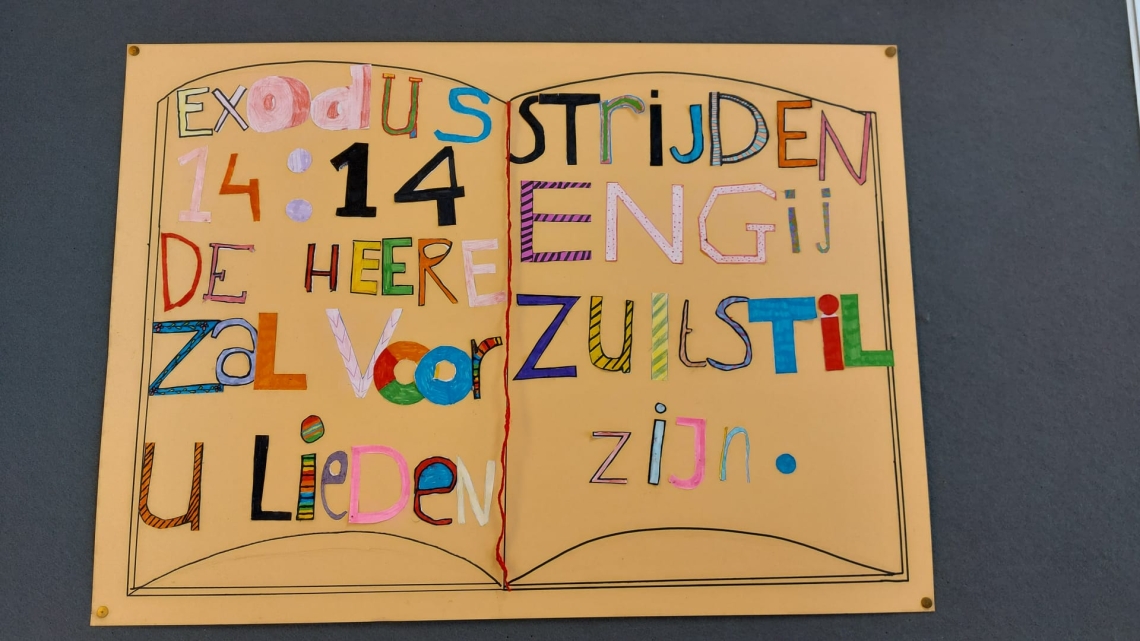 Exodus
14:14
DE HEERE
Zal Voor
u LieDeN
STrijDEN
EN Gij
ZuLt STiL
ziJn.